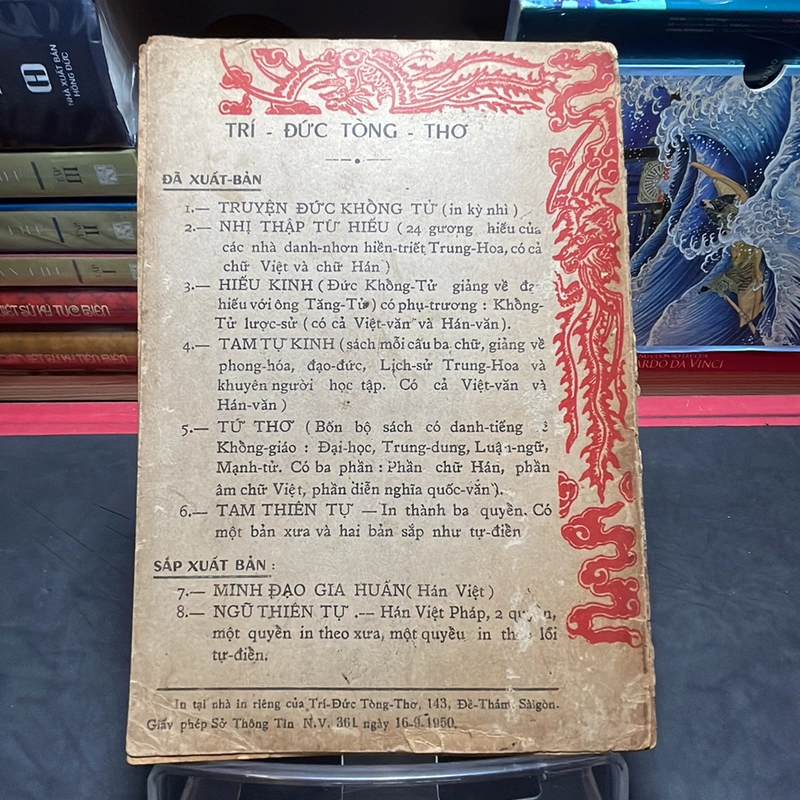 NHÀ XUẤT BẢN
HỒNG ĐỨC
III
II
I
TRÍ - ĐỨC TÒNG - THƠ
ĐÃ XUẤT-BẢN
1.— TRUYỆN ĐỨC KHỔNG TỬ (in kỳ nhì)
2.— NHỊ THẬP TỨ HIẾU (24 gương hiếu của
các nhà danh-nhơn hiền-triết Trung-Hoa, có cả
chữ Việt và chữ Hán)
3.— HIẾU KINH (Đức Khổng-Tử giảng về đạo
hiếu với ông Tăng-Tử) có phụ-trương : Khổng-
Tử lược-sử (có cả Việt-văn và Hán-văn).
4.— TAM TỰ KINH (sách mỗi câu ba chữ, giảng về
phong-hóa, đạo-đức, Lịch-sử Trung-Hoa và
khuyên người học tập. Có cả Việt-văn và
Hán-văn)
5.— TỨ THƠ (Bốn bộ sách có danh-tiếng
Khổng-giáo : Đại-học, Trung-dung, Luận-ngữ,
Mạnh-tử. Có ba phần : Phần chữ Hán, phần
âm chữ Việt, phần diễn nghĩa quốc-văn).
6.— TAM THIÊN TỰ — In thành ba quyển. Có
một bản xưa và hai bản sắp như tự-điển
SẮP XUẤT BẢN :
7.— MINH ĐẠO GIA HUẤN (Hán Việt)
8.— NGŨ THIÊN TỰ .-- Hán Việt Pháp, 2 quyển,
một quyển in theo xưa, một quyều in theo lối
tự-điển.
In tại nhà in riêng của Trí-Đức Tòng-Thơ, 143, Đề-Thám, Sàigòn.
Giấy phép Sở Thông Tin N.V. 361 ngày 16-9.1950.
ARDO DA VINCI